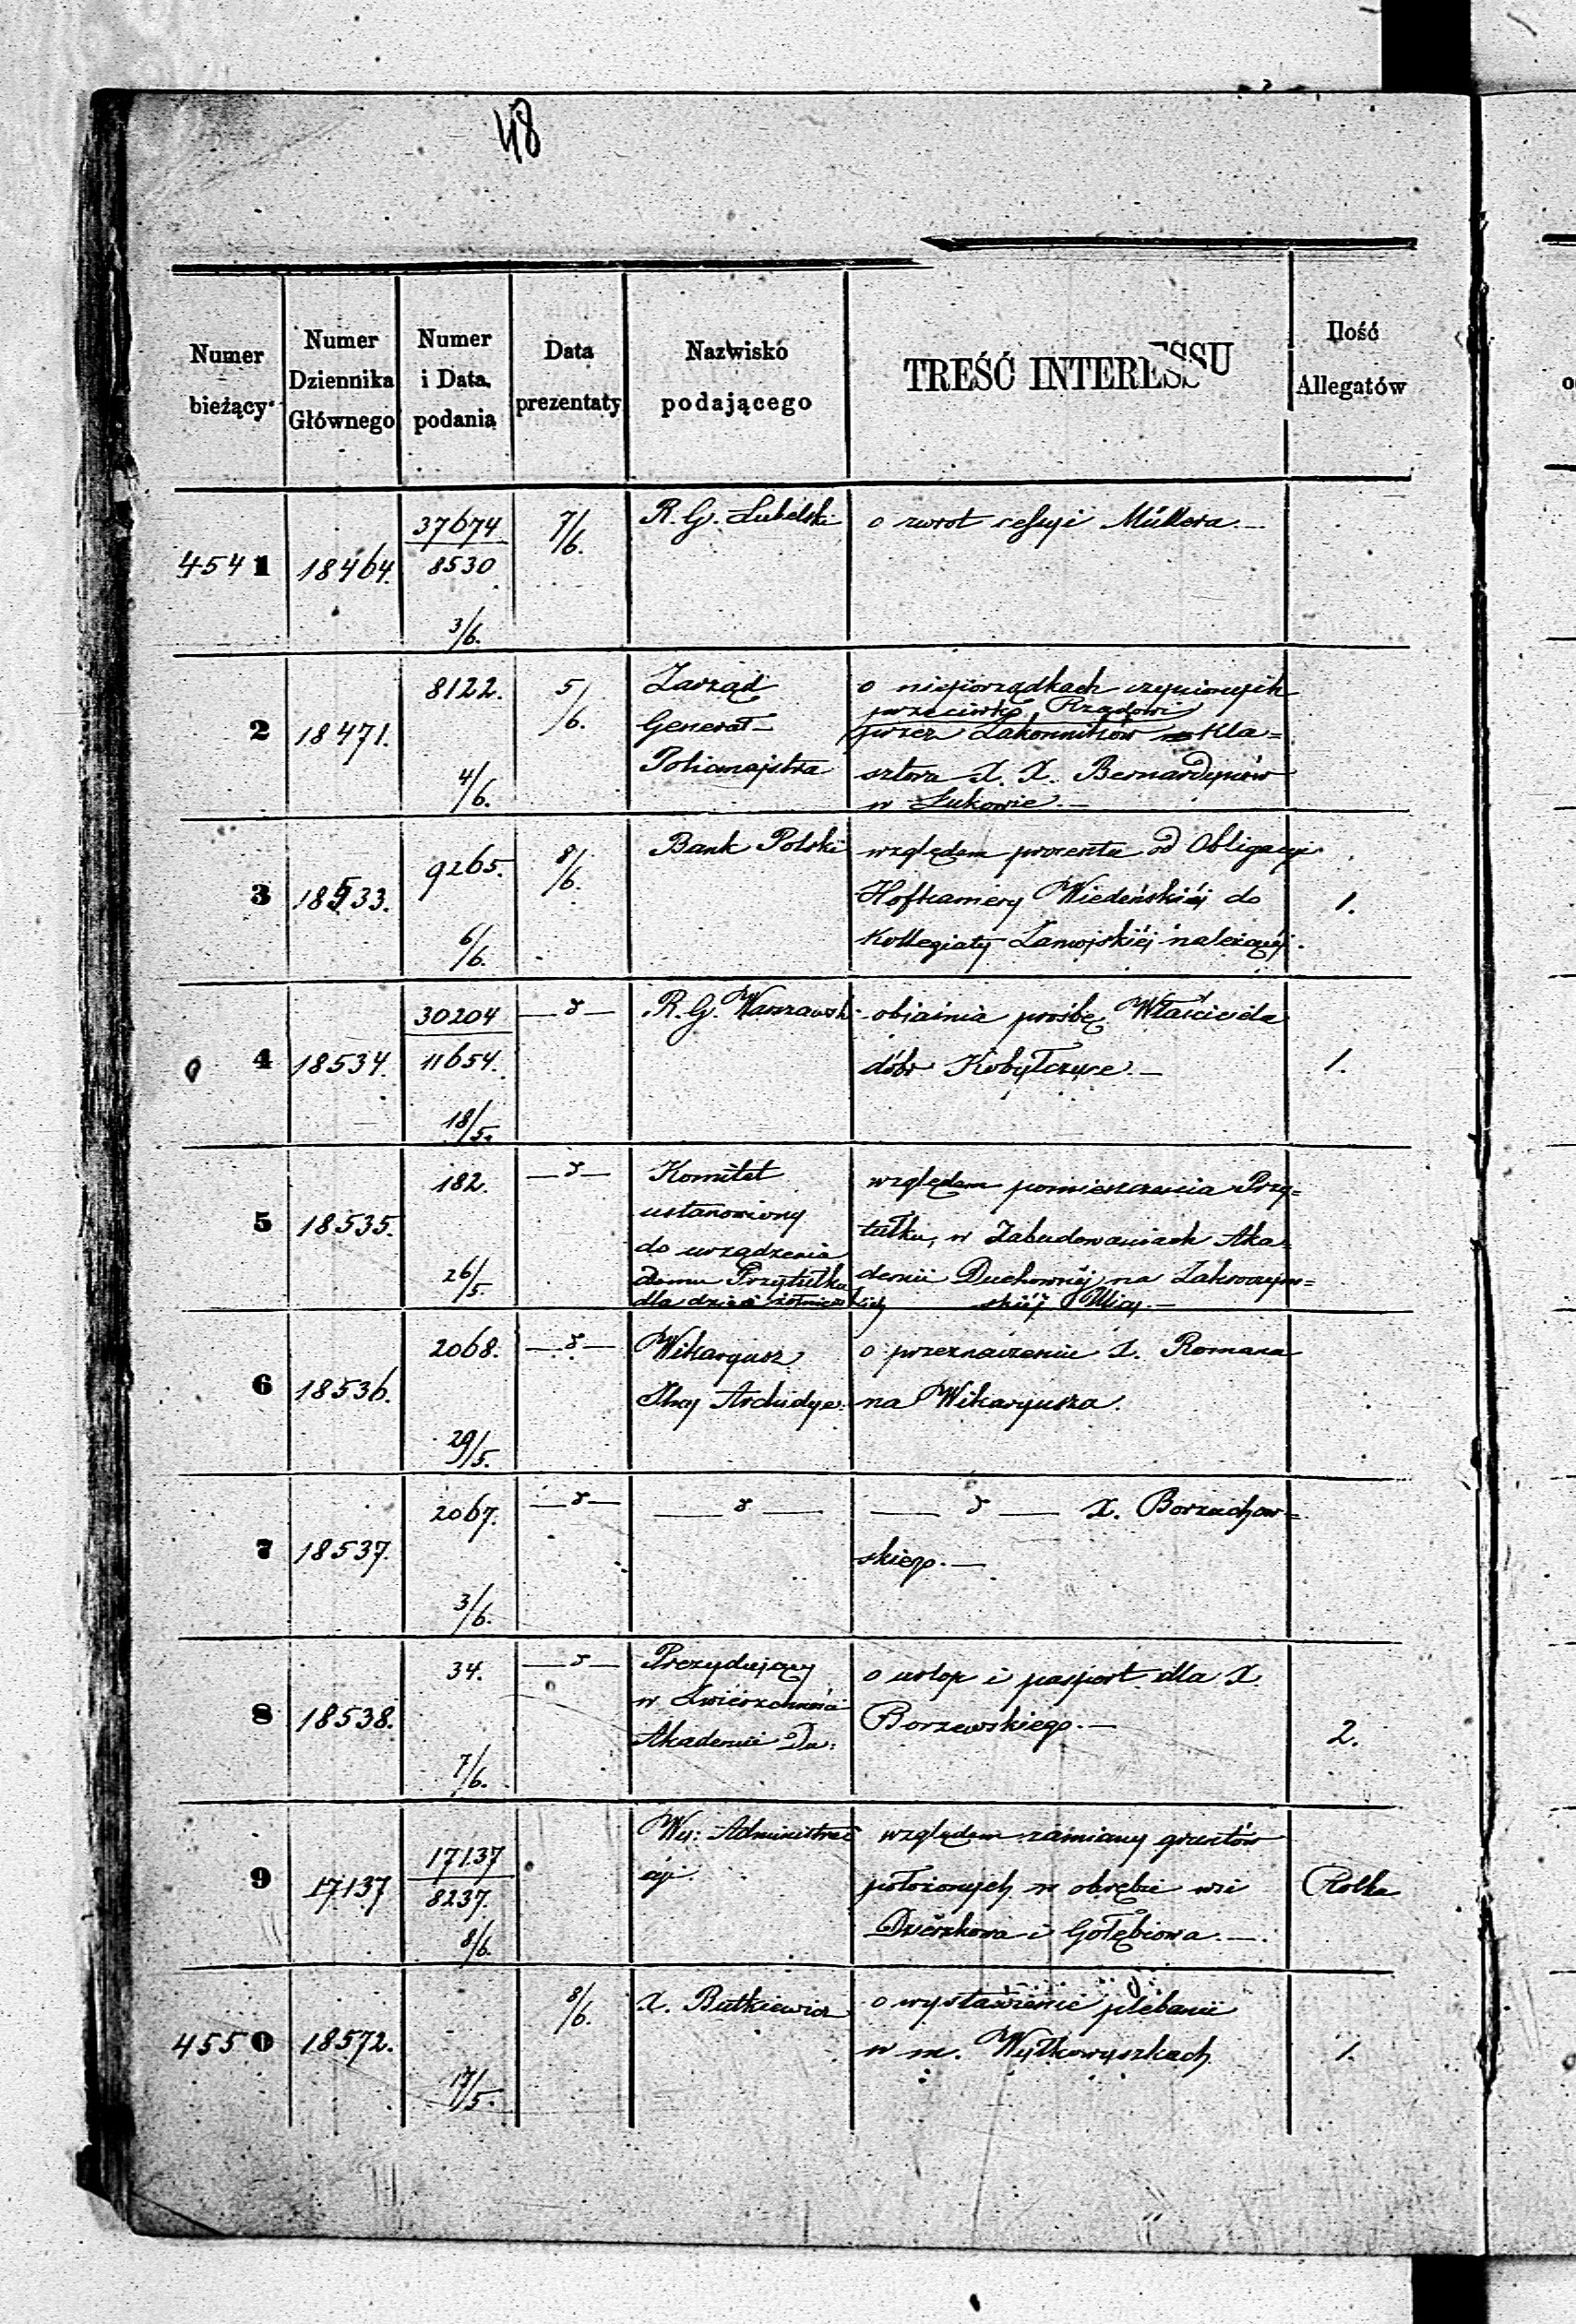 48
Numer bieżący
Numer Dziennika Głównego
Numer i Data podania
Data prezentaty
Nazwisko podającego
TREŚĆ INTERESSU
Ilość Allegatów
4541 18464. 37674/8530 3/6. 7/6. R. G. Lubelski o zwrot cessyi Müllera.—
2 18471. 8122. 4/6. 5/6.
Zarząd
Generał-
Policmajstra
o nieporządkach czynionych
przeciwko Rządowi
przez Zakonników Kla=
sztoru X. X. Bernardynów
w Łukowie.—
3 18533. 9265. 6/6. 8/6. Bank Polski
względem procentu od Obligacyi
Hofkamery Wiedeńskiéj do
Kollegiaty Zamojskiéj należącéj.
1.
4 18534. 30204/11654. 18/5. —d— R. G. Warszawski
objaśnia prośbę Właściciela
dóbr Kobyłczyce.—
1.
5 18535. 182. 26/5. —d—
Komitet
ustanowiony
do urządzenia
domu Przytułku
dla dzieci żołnierskich
względem pomieszczenia Przy=
tułku, w Zabudowaniach Aka=
demii Duchownéj na Zakroczym=
skiéj Ulicy.—
6 18536. 2068. 29/5. —d—
Wikaryusz
Archidyec:
o przeznaczenie X. Romana
na Wikaryusza.
7 18537. 2067. 3/6. —d— —d— —d— X. Borzuchow=
skiego.—
8 18538. 34. 7/6. —d—
Prezydujący
w Zwierzchności
Akademii Du:
o urlop i pasport dla X.
Borzewskiego.—
2.
9 17137 17137/8237. 8/6.
Wy: Administrac
cyi.
względem zamiany gruntów
położonych w obrębie wsi
Dzierzkowa i Gołębiowa.—
Rolka
4550 18572. 17/5. 8/6. X. Butkiewicz
o wystawienie plebanii
w m. Wyłkowyszkach
1.